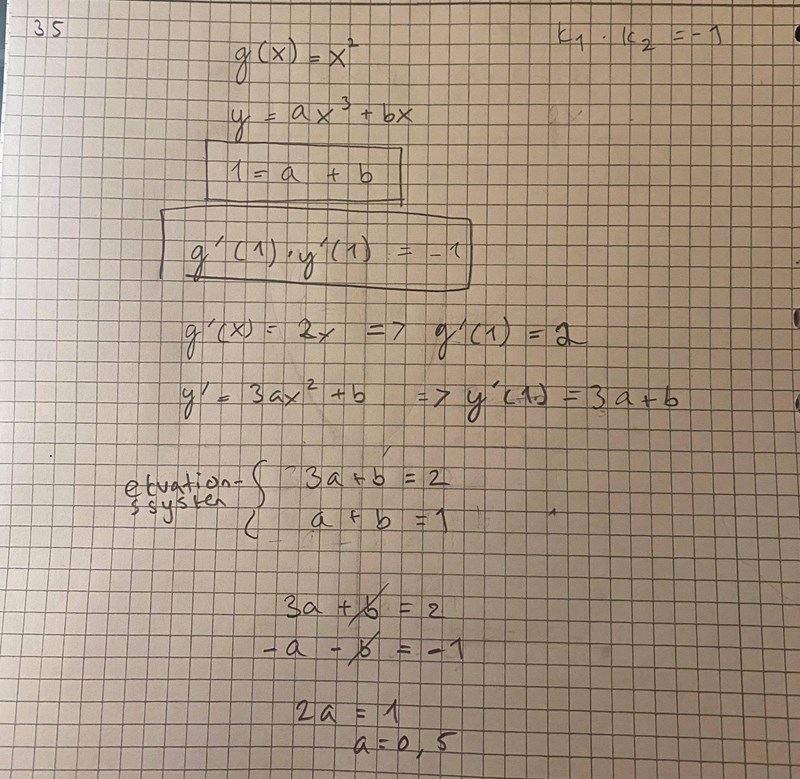 35
k₁ · k₂ = -1
g(x) = x²
y = ax³ + bx
1 = a + b
g'(1) · y'(1) = -1
g'(x) = 2x => g'(1) = 2
y' = 3ax² + b => y'(1) = 3a + b
ekvation-
ssystem
{ 3a + b = 2
a + b = 1
3a + b = 2
-a - b = -1
2a = 1
a = 0,5